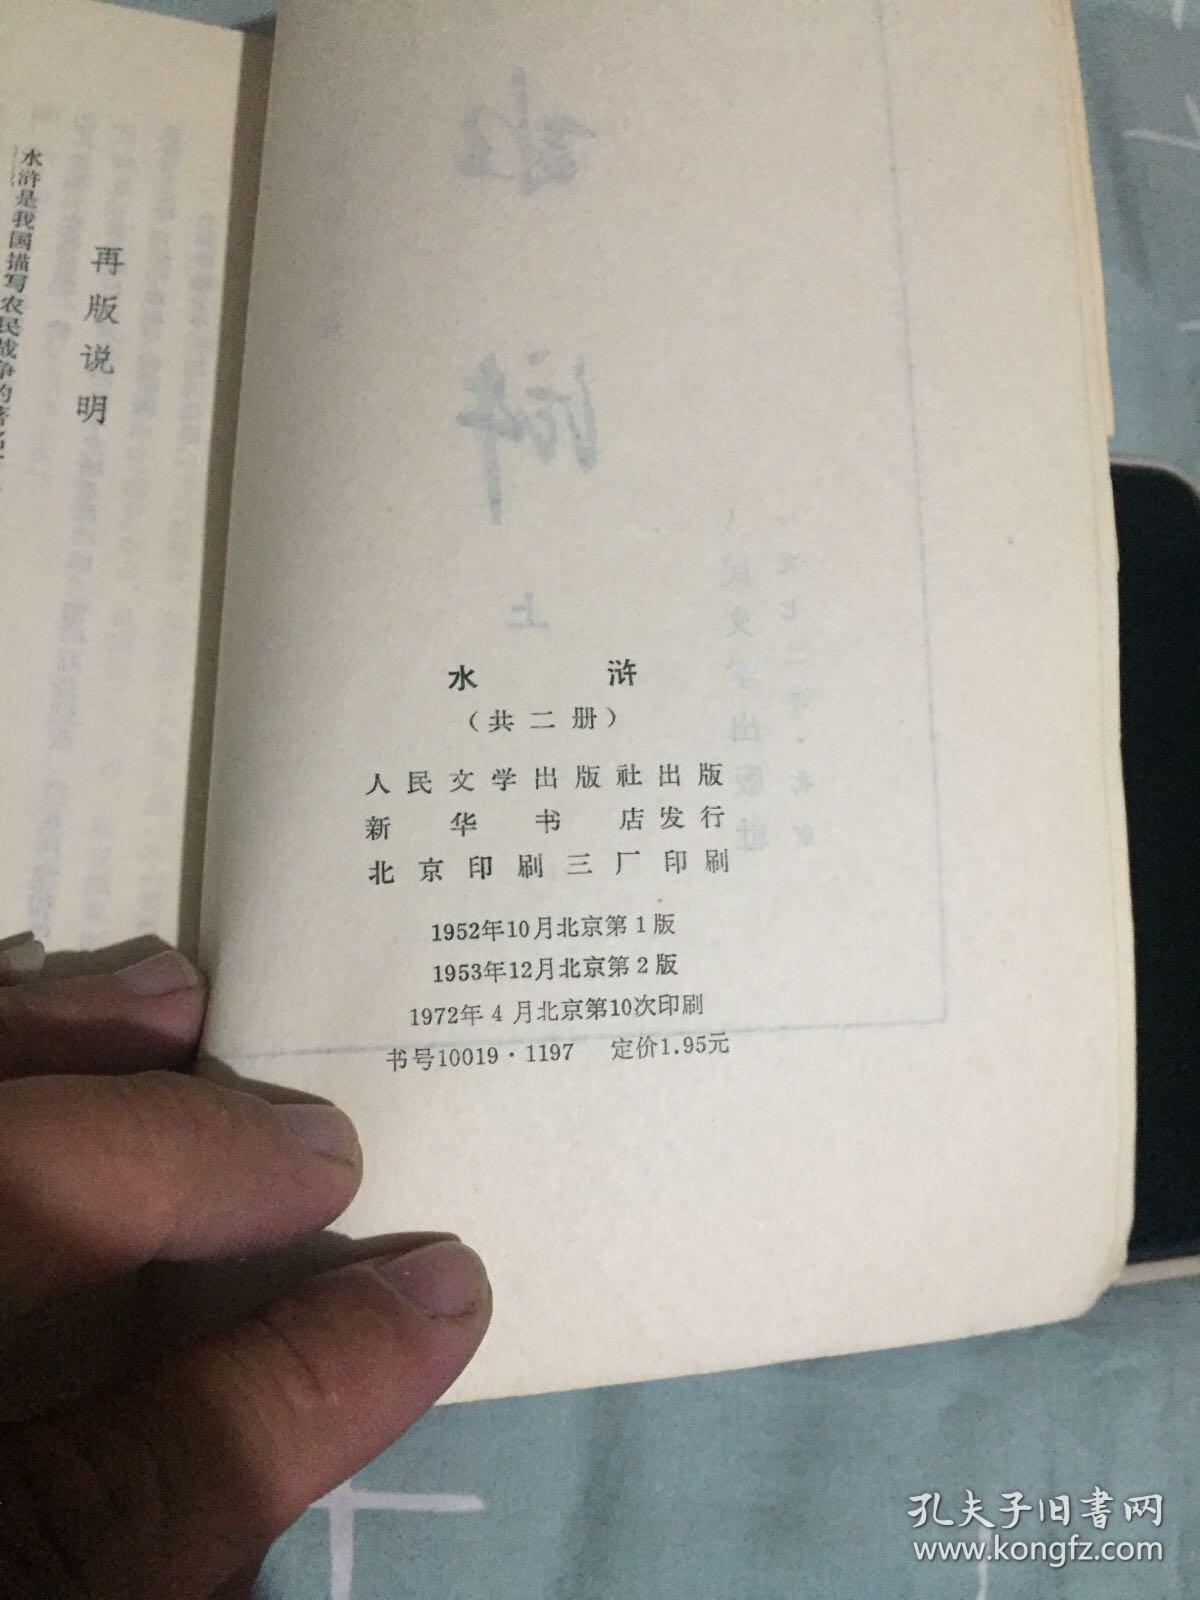 水浒
（共二册）
人民文学出版社出版
新华书店发行
北京印刷三厂印刷
1952年10月北京第1版
1953年12月北京第2版
1972年4月北京第10次印刷
书号10019·1197 定价1.95元
再版说明
水浒是我国描写农民战争的著
水
浒
上
人民文学出版社
孔夫子旧书网
www.kongfz.com